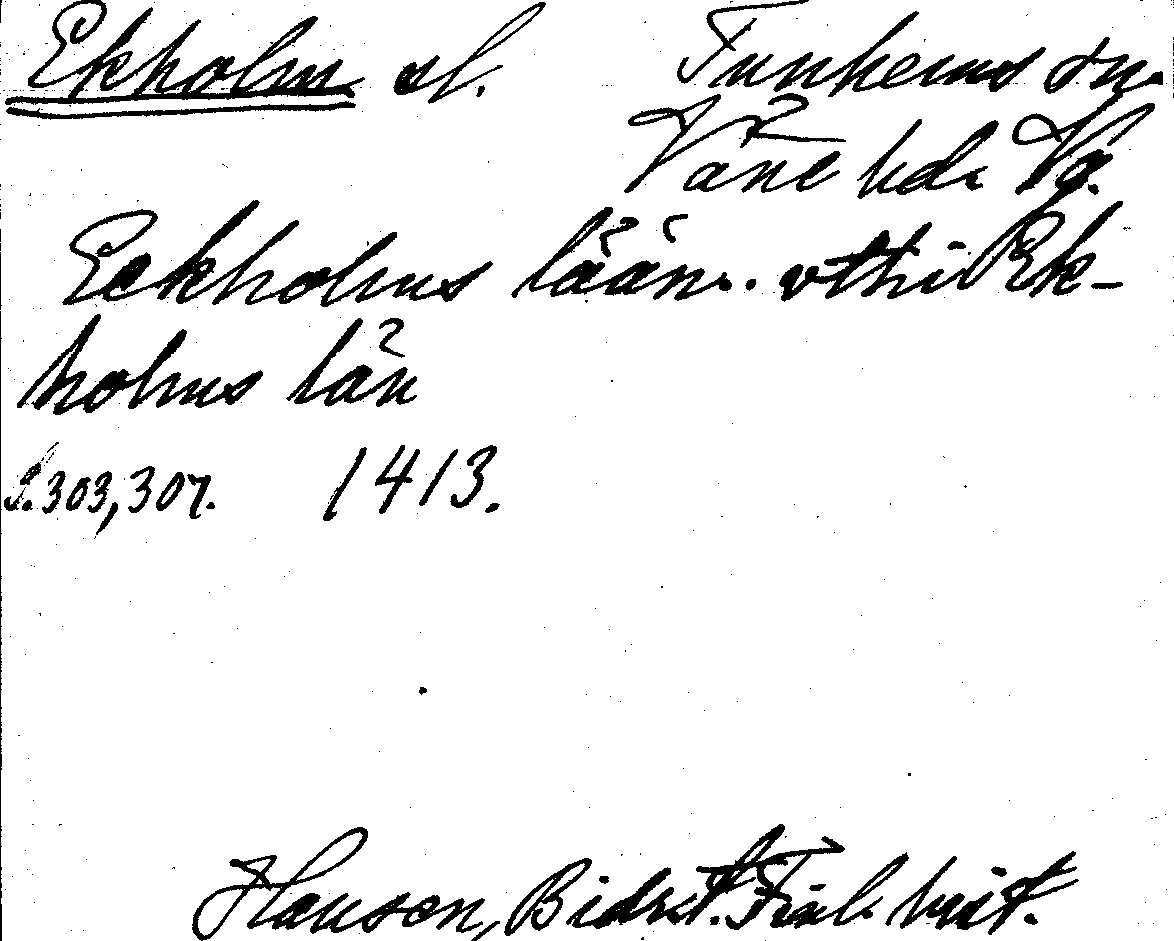 Ekholm sl. Funkens sn.
Väne hd. Vg.
Eckholms låån. vthi Ek-
holms lån
S. 303, 307. 1413.
Hausen, Bidr. t. Finl. hist.